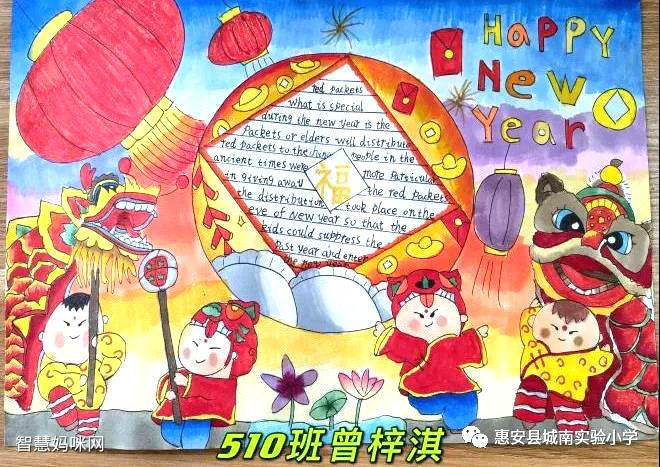 Happy
New
Year
red packets
what is special
during the new year is the
Packets or elders will distribute
red packets to the people in the
ancient times were more particular
in giving away the red packets
the distribution took place on the
eve of New year so that the
kids could suppress the
Past year and enter
the new year
福
510班曾梓淇
智慧妈咪网
惠安县城南实验小学